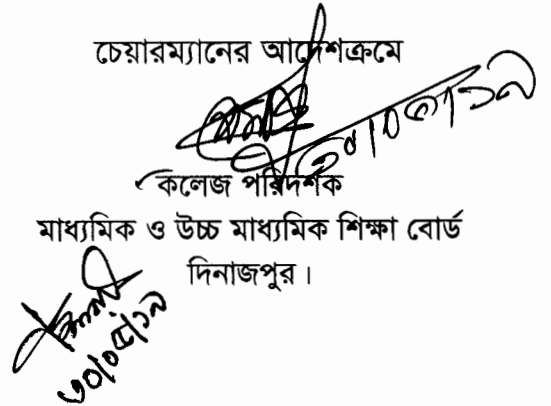 চেয়ারম্যানের আদেশক্রমে
কলেজ পরিদর্শক
মাধ্যমিক ও উচ্চ মাধ্যমিক শিক্ষা বোর্ড
দিনাজপুর।